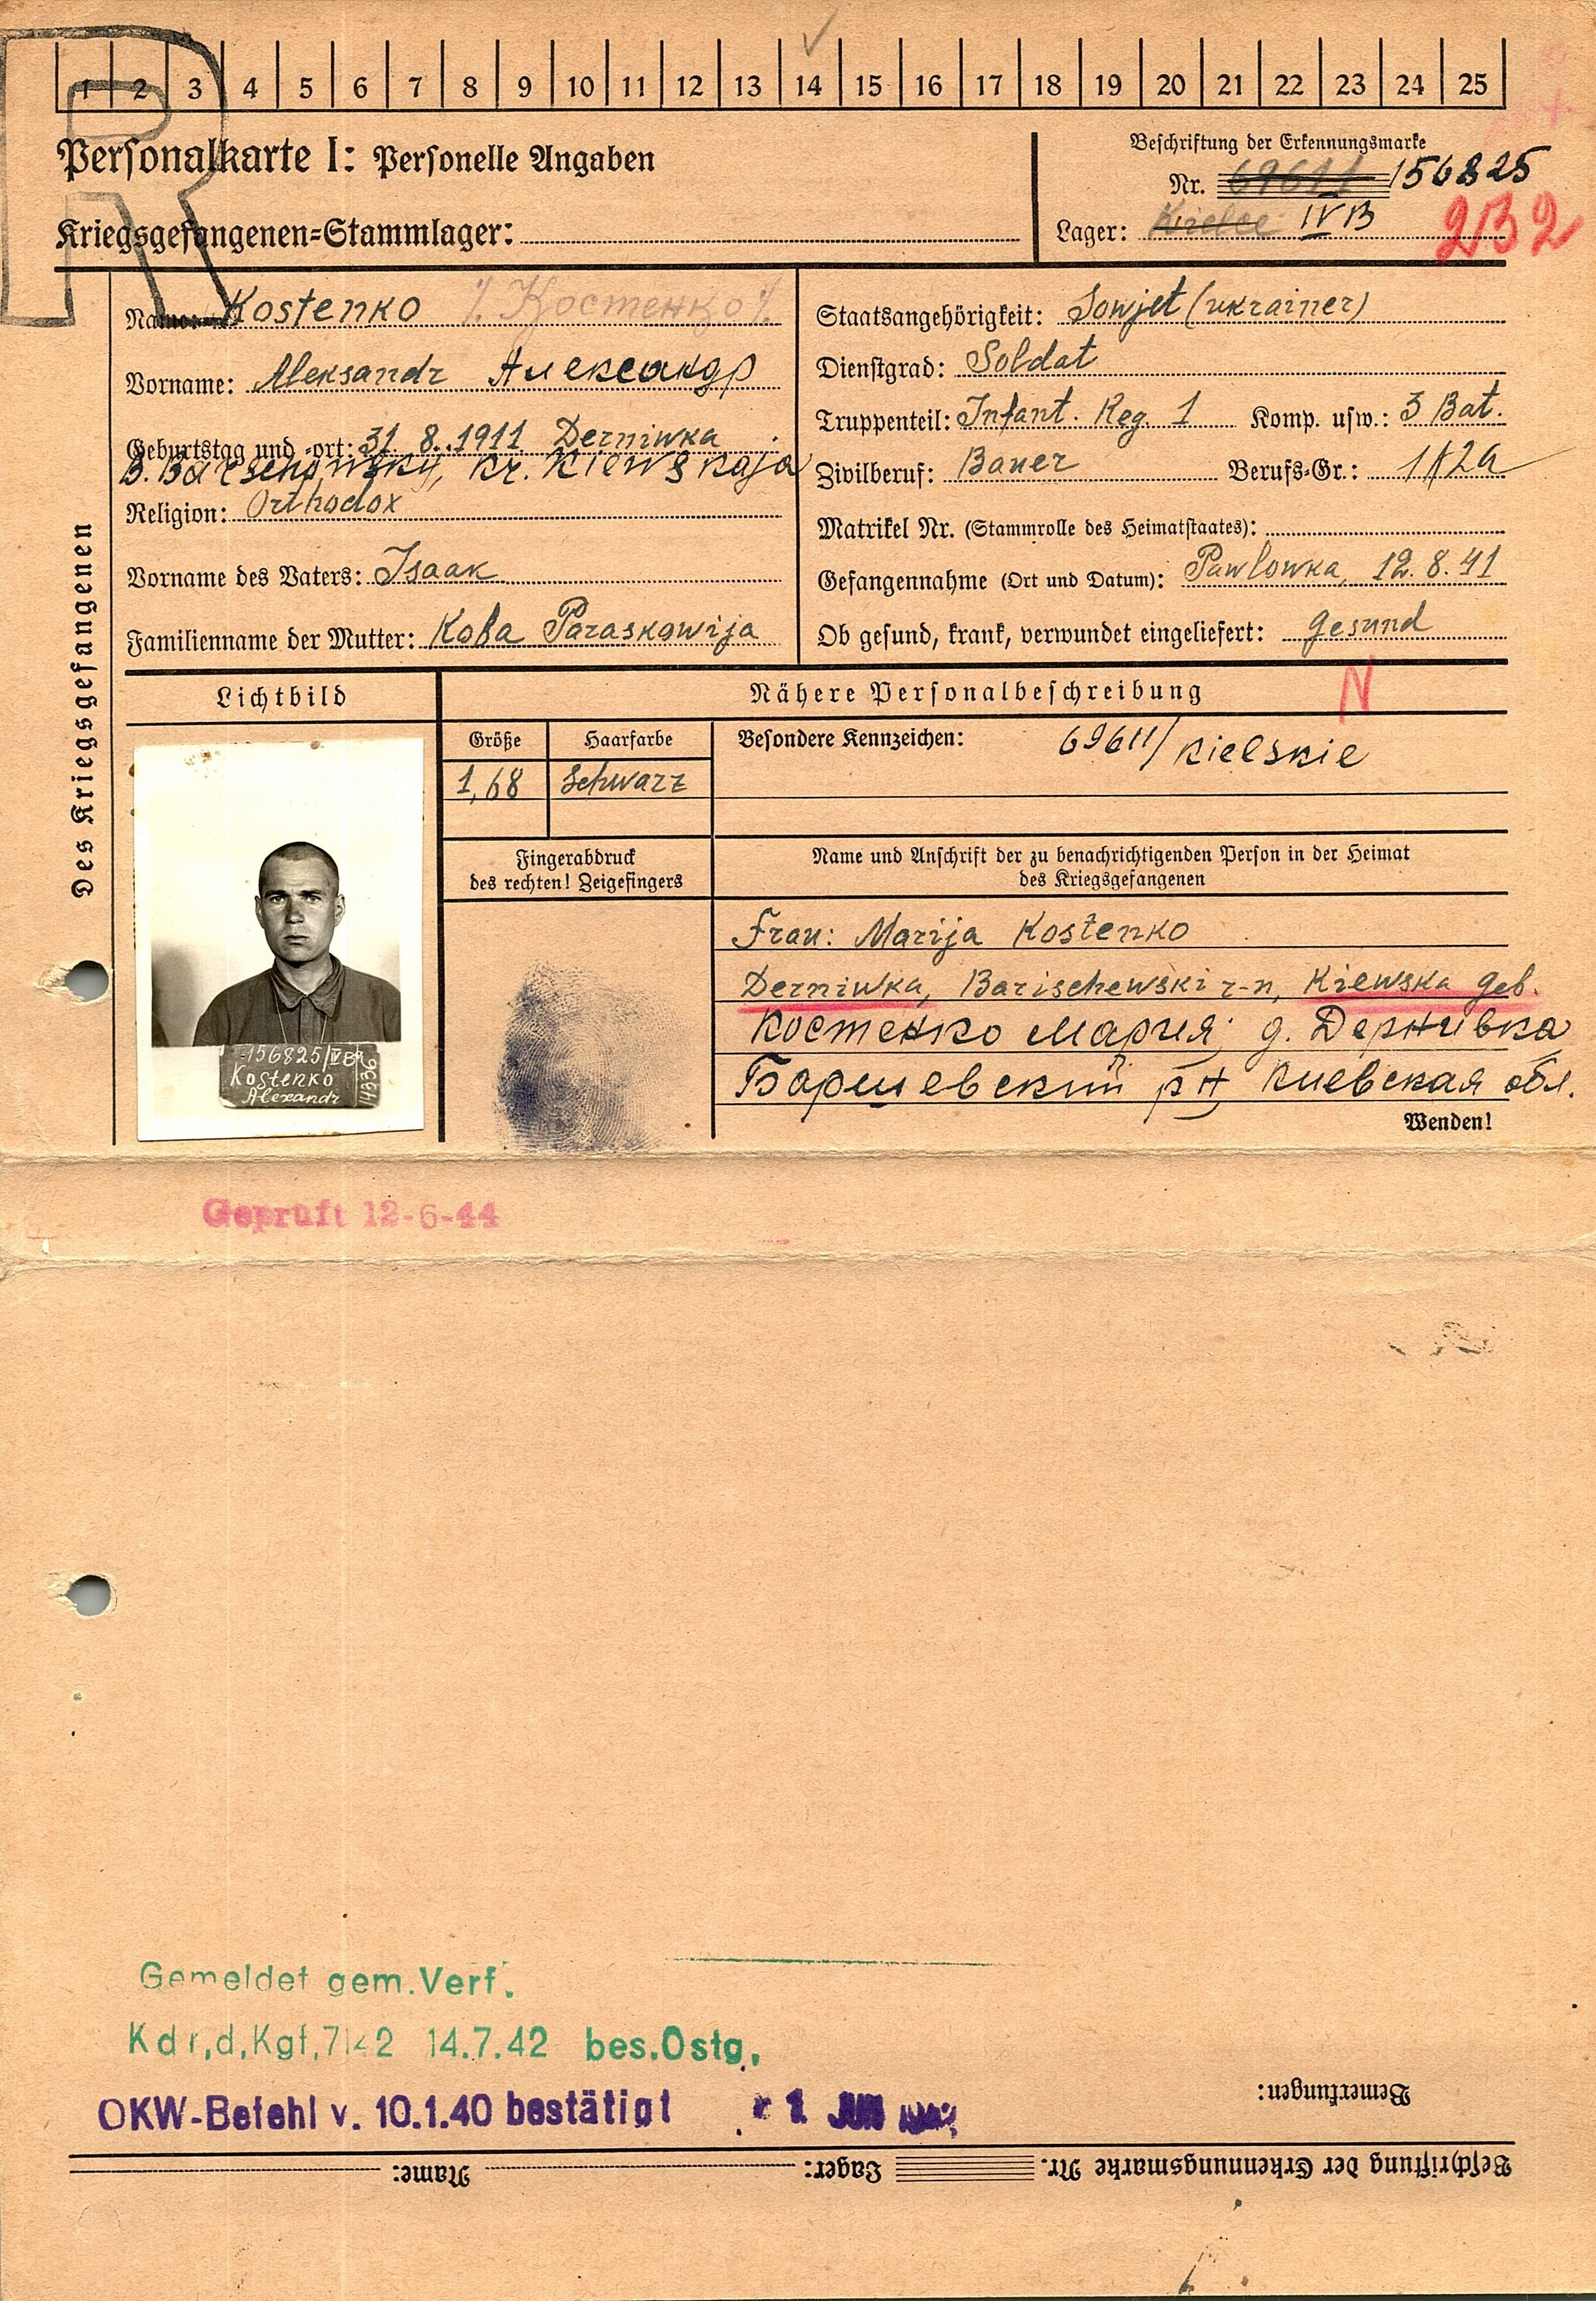 1 2 3 4 5 6 7 8 9 10 11 12 13 14 15 16 17 18 19 20 21 22 23 24 25
R
Personalkarte I: Personelle Angaben
Beschriftung der Erkennungsmarke
Nr. 69611 156825
Kriegsgefangenen=Stammlager:
Lager: Kielce IV B
232
Des Kriegsgefangenen
Name: Kostenko /. Костенко /.
Vorname: Aleksandr Александр
Geburtstag und -ort: 31.8.1911 Derniwka
Kr. Kiewskaja
Religion: Orthodox
Vorname des Vaters: Isaak
Familienname der Mutter: Koba Paraskowija
Staatsangehörigkeit: Sowjet (ukrainer)
Dienstgrad: Soldat
Truppenteil: Infant. Reg 1 Komp. usw.: 3 Bat.
Zivilberuf: Bauer Berufs=Gr.:
Matrikel Nr. (Stammrolle des Heimatstaates):
Gefangennahme (Ort und Datum): Pawlowka, 12.8.41
Ob gesund, krank, verwundet eingeliefert: gesund
Lichtbild
Nähere Personalbeschreibung
N
Größe
Haarfarbe
Besondere Kennzeichen: 69611/Kielskie
1,68
schwarz
Fingerabdruck
des rechten! Zeigefingers
Name und Anschrift der zu benachrichtigenden Person in der Heimat
des Kriegsgefangenen
Frau: Marija Kostenko
Derniwka, Barischewski r-n, Kiewska geb.
Костенко Мария; д. Дернивка
Баришевский р-н, Киевская обл.
156825/IV B
Kostenko
Alexandr
Wenden!
Geprüft 12-6-44
Gemeldet gem. Verf.
Kdr,d,Kgf,7142 14.7.42 bes.Ostg.
OKW-Befehl v. 10.1.40 bestätigt
Bemerkungen:
Beschriftung der Erkennungsmarke Nr. Lager: Name: